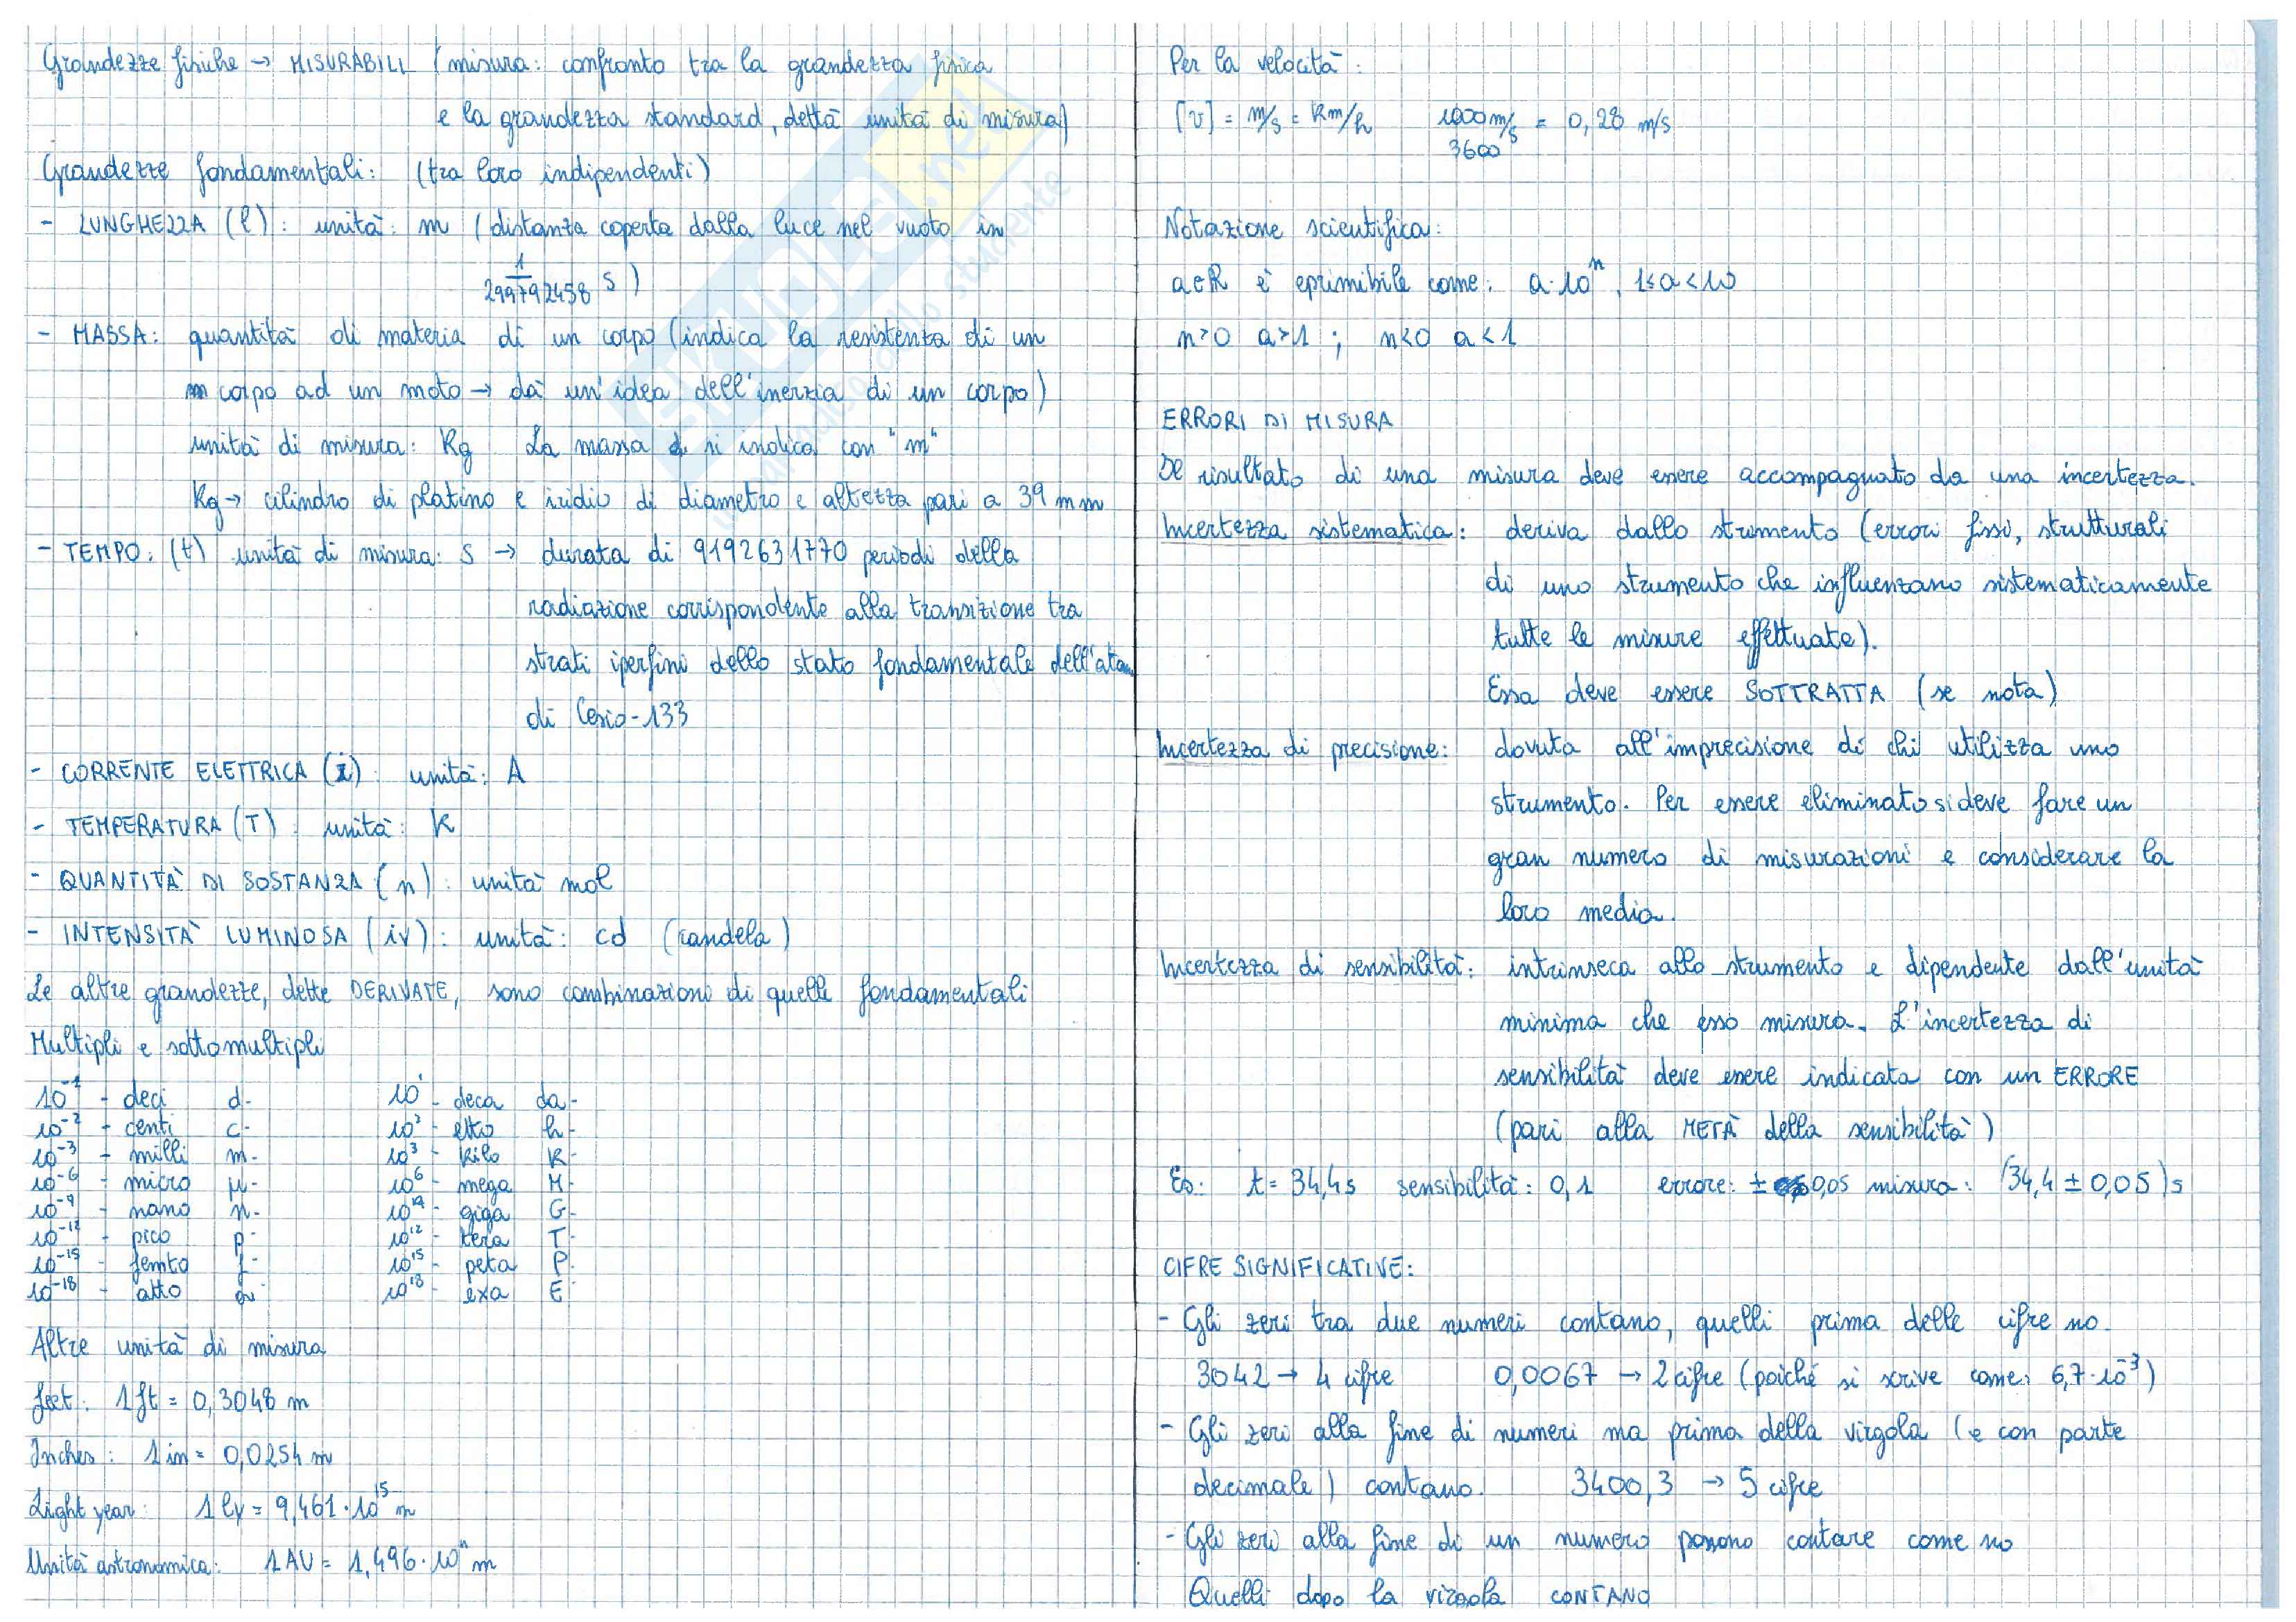 Grandezze fisiche → MISURABILI (misura: confronto tra la grandezza fisica
e la grandezza standard, detta unità di misura)
Grandezze fondamentali: (tra loro indipendenti)
- LUNGHEZZA (l): unità: m (distanza coperta dalla luce nel vuoto in
1/299792458 s)
- MASSA: quantità di materia di un corpo (indica la resistenza di un
corpo ad un moto → dà un'idea dell'inerzia di un corpo)
unità di misura: Kg La massa si indica con "m"
Kg → cilindro di platino e iridio di diametro e altezza pari a 39 mm
- TEMPO: (t) unità di misura: s → durata di 9192631770 periodi della
radiazione corrispondente alla transizione tra
strati iperfini dello stato fondamentale dell'atom
di Cesio-133
- CORRENTE ELETTRICA (i): unità: A
- TEMPERATURA (T): unità: K
- QUANTITÀ DI SOSTANZA (n): unità mol
- INTENSITÀ LUMINOSA (iv): unità: cd (candela)
Le altre grandezze, dette DERIVATE, sono combinazioni di quelle fondamentali
Multipli e sottomultipli
10⁻¹ - deci d- 10¹ - deca da-
10⁻² - centi c- 10² - etto h-
10⁻³ - milli m- 10³ - kilo K-
10⁻⁶ - micro μ- 10⁶ - mega M-
10⁻⁹ - nano n- 10¹⁹ - giga G-
10⁻¹² - pico p- 10¹² - tera T-
10⁻¹⁵ - femto f- 10¹⁵ - peta P-
10⁻¹⁸ - atto a- 10¹⁸ - exa E
Altre unità di misura
feet: 1 ft = 0,3048 m
Inches: 1 in = 0,0254 m
Light year: 1 ly = 9,461·10¹⁵ m
Unità astronomica: 1 AU = 1,496·10¹¹ m
Per la velocità:
[v] = m/s = Km/h 1000 m/3600 s = 0,28 m/s
Notazione scientifica:
a∈R è eprimibile come: a·10ⁿ, 1≤a<10
n>0 a>1 ; n<0 a<1
ERRORI DI MISURA
Il risultato di una misura deve essere accompagnato da una incertezza.
Incertezza sistematica: deriva dallo strumento (errori fissi, strutturali
di uno strumento che influenzano sistematicamente
tutte le misure effettuate).
Essa deve essere SOTTRATTA (se nota)
Incertezza di precisione: dovuta all'imprecisione di chi utilizza uno
strumento. Per essere eliminato si deve fare un
gran numero di misurazioni e considerare la
loro media.
Incertezza di sensibilità: intrinseca allo strumento e dipendente dall'unità
minima che esso misura. L'incertezza di
sensibilità deve essere indicata con un ERRORE
(pari alla METÀ della sensibilità)
Es: t = 34,4 s sensibilità: 0,1 errore: ± 0,05 misura: (34,4 ± 0,05) s
CIFRE SIGNIFICATIVE:
- Gli zeri tra due numeri contano, quelli prima delle cifre no.
3042 → 4 cifre 0,0067 → 2 cifre (poiché si scrive come: 6,7·10⁻³)
- Gli zeri alla fine di numeri ma prima della virgola (e con parte
decimale) contano. 3400,3 → 5 cifre
- Gli zeri alla fine di un numero possono contare come no
Quelli dopo la virgola CONTANO